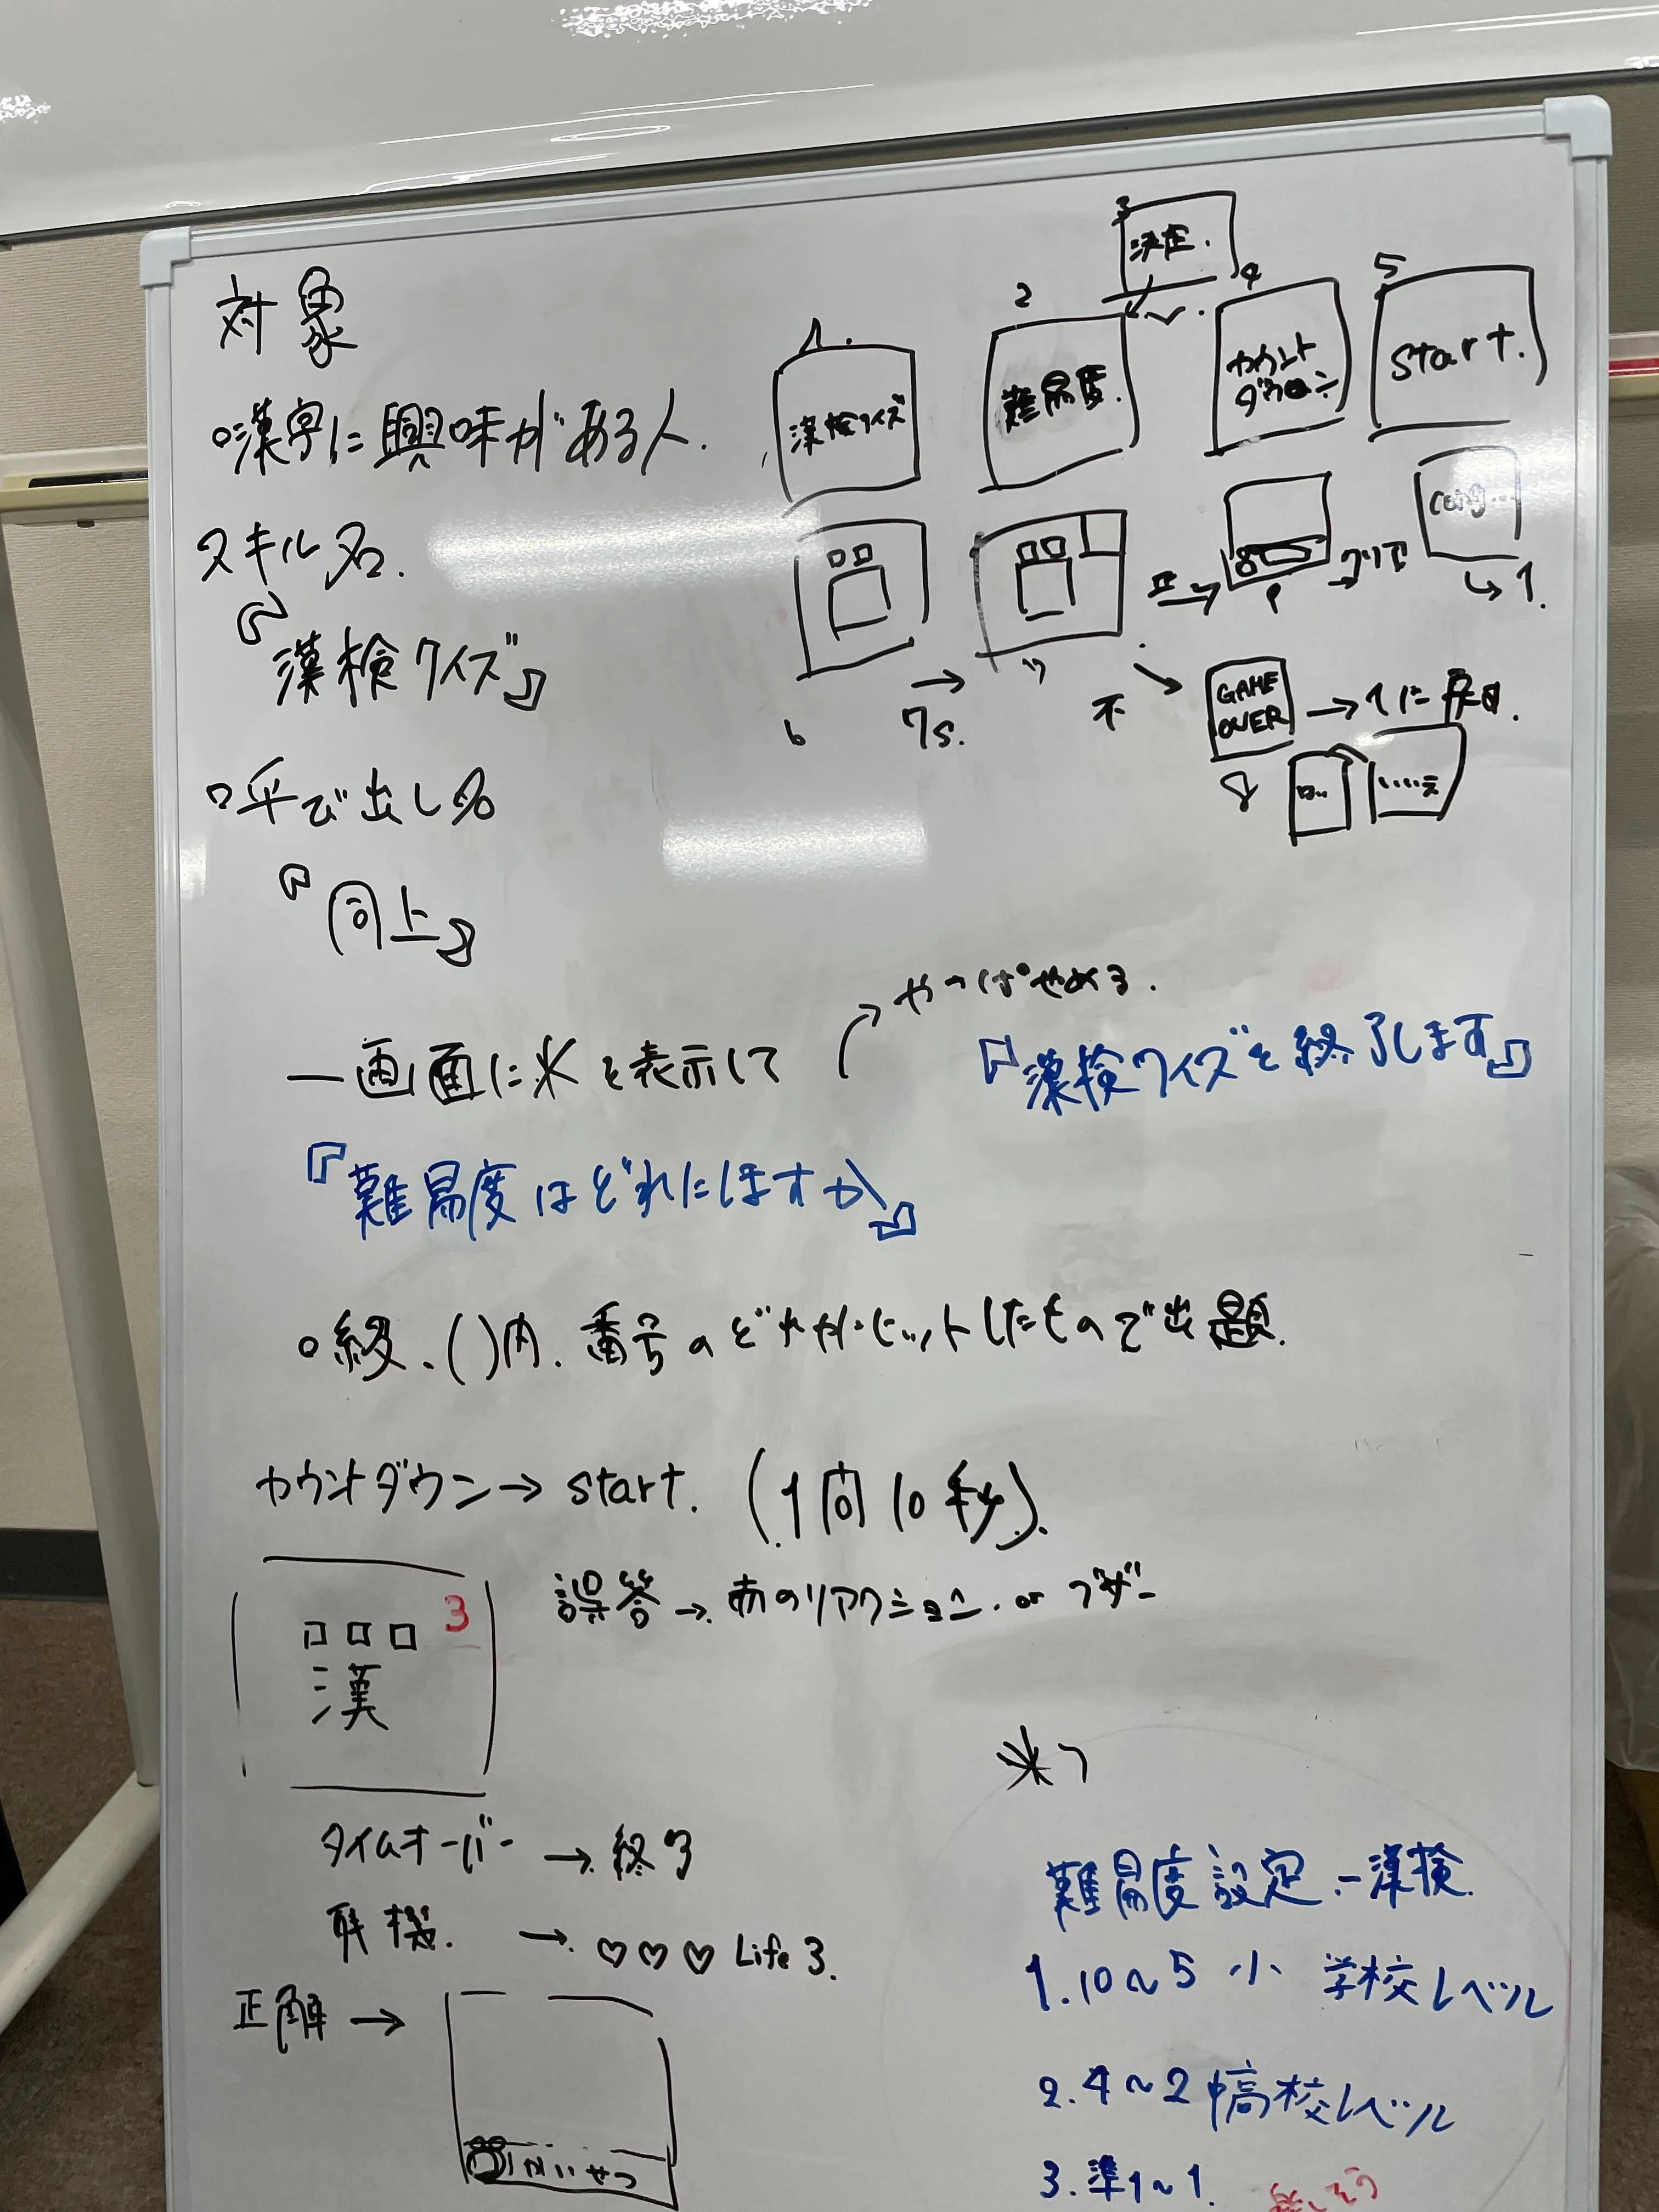 対象
○漢字に興味がある人.
スキル名.
『漢検クイズ』
○呼び出し名
『同上』
1.
漢検クイズ
2
難易度.
3
決定.
4
カウント
ダウン
5
Start.
6
→
7s.
正→
クリア
→
cong...
↳ 1.
不
GAME
OVER
→ 1に戻る.
8
はい
いいえ
やっぱやめる.
一画面に※を表示して
『漢検クイズを終了します』
『難易度はどれにしますか』
○級、( )内、番号のどれかヒットしたもので出題.
カウントダウン→ start. (1問10秒).
□□□ 3
漢
誤答→ 赤のリアクション. or ブザー
タイムオーバー → 終了
残機. → ♡♡♡ Life 3.
正解 →
かいせつ
※1
難易度設定 ー漢検
1. 10～5 小学校レベル
2. 4～2 中高校レベル
3. 準1～1.